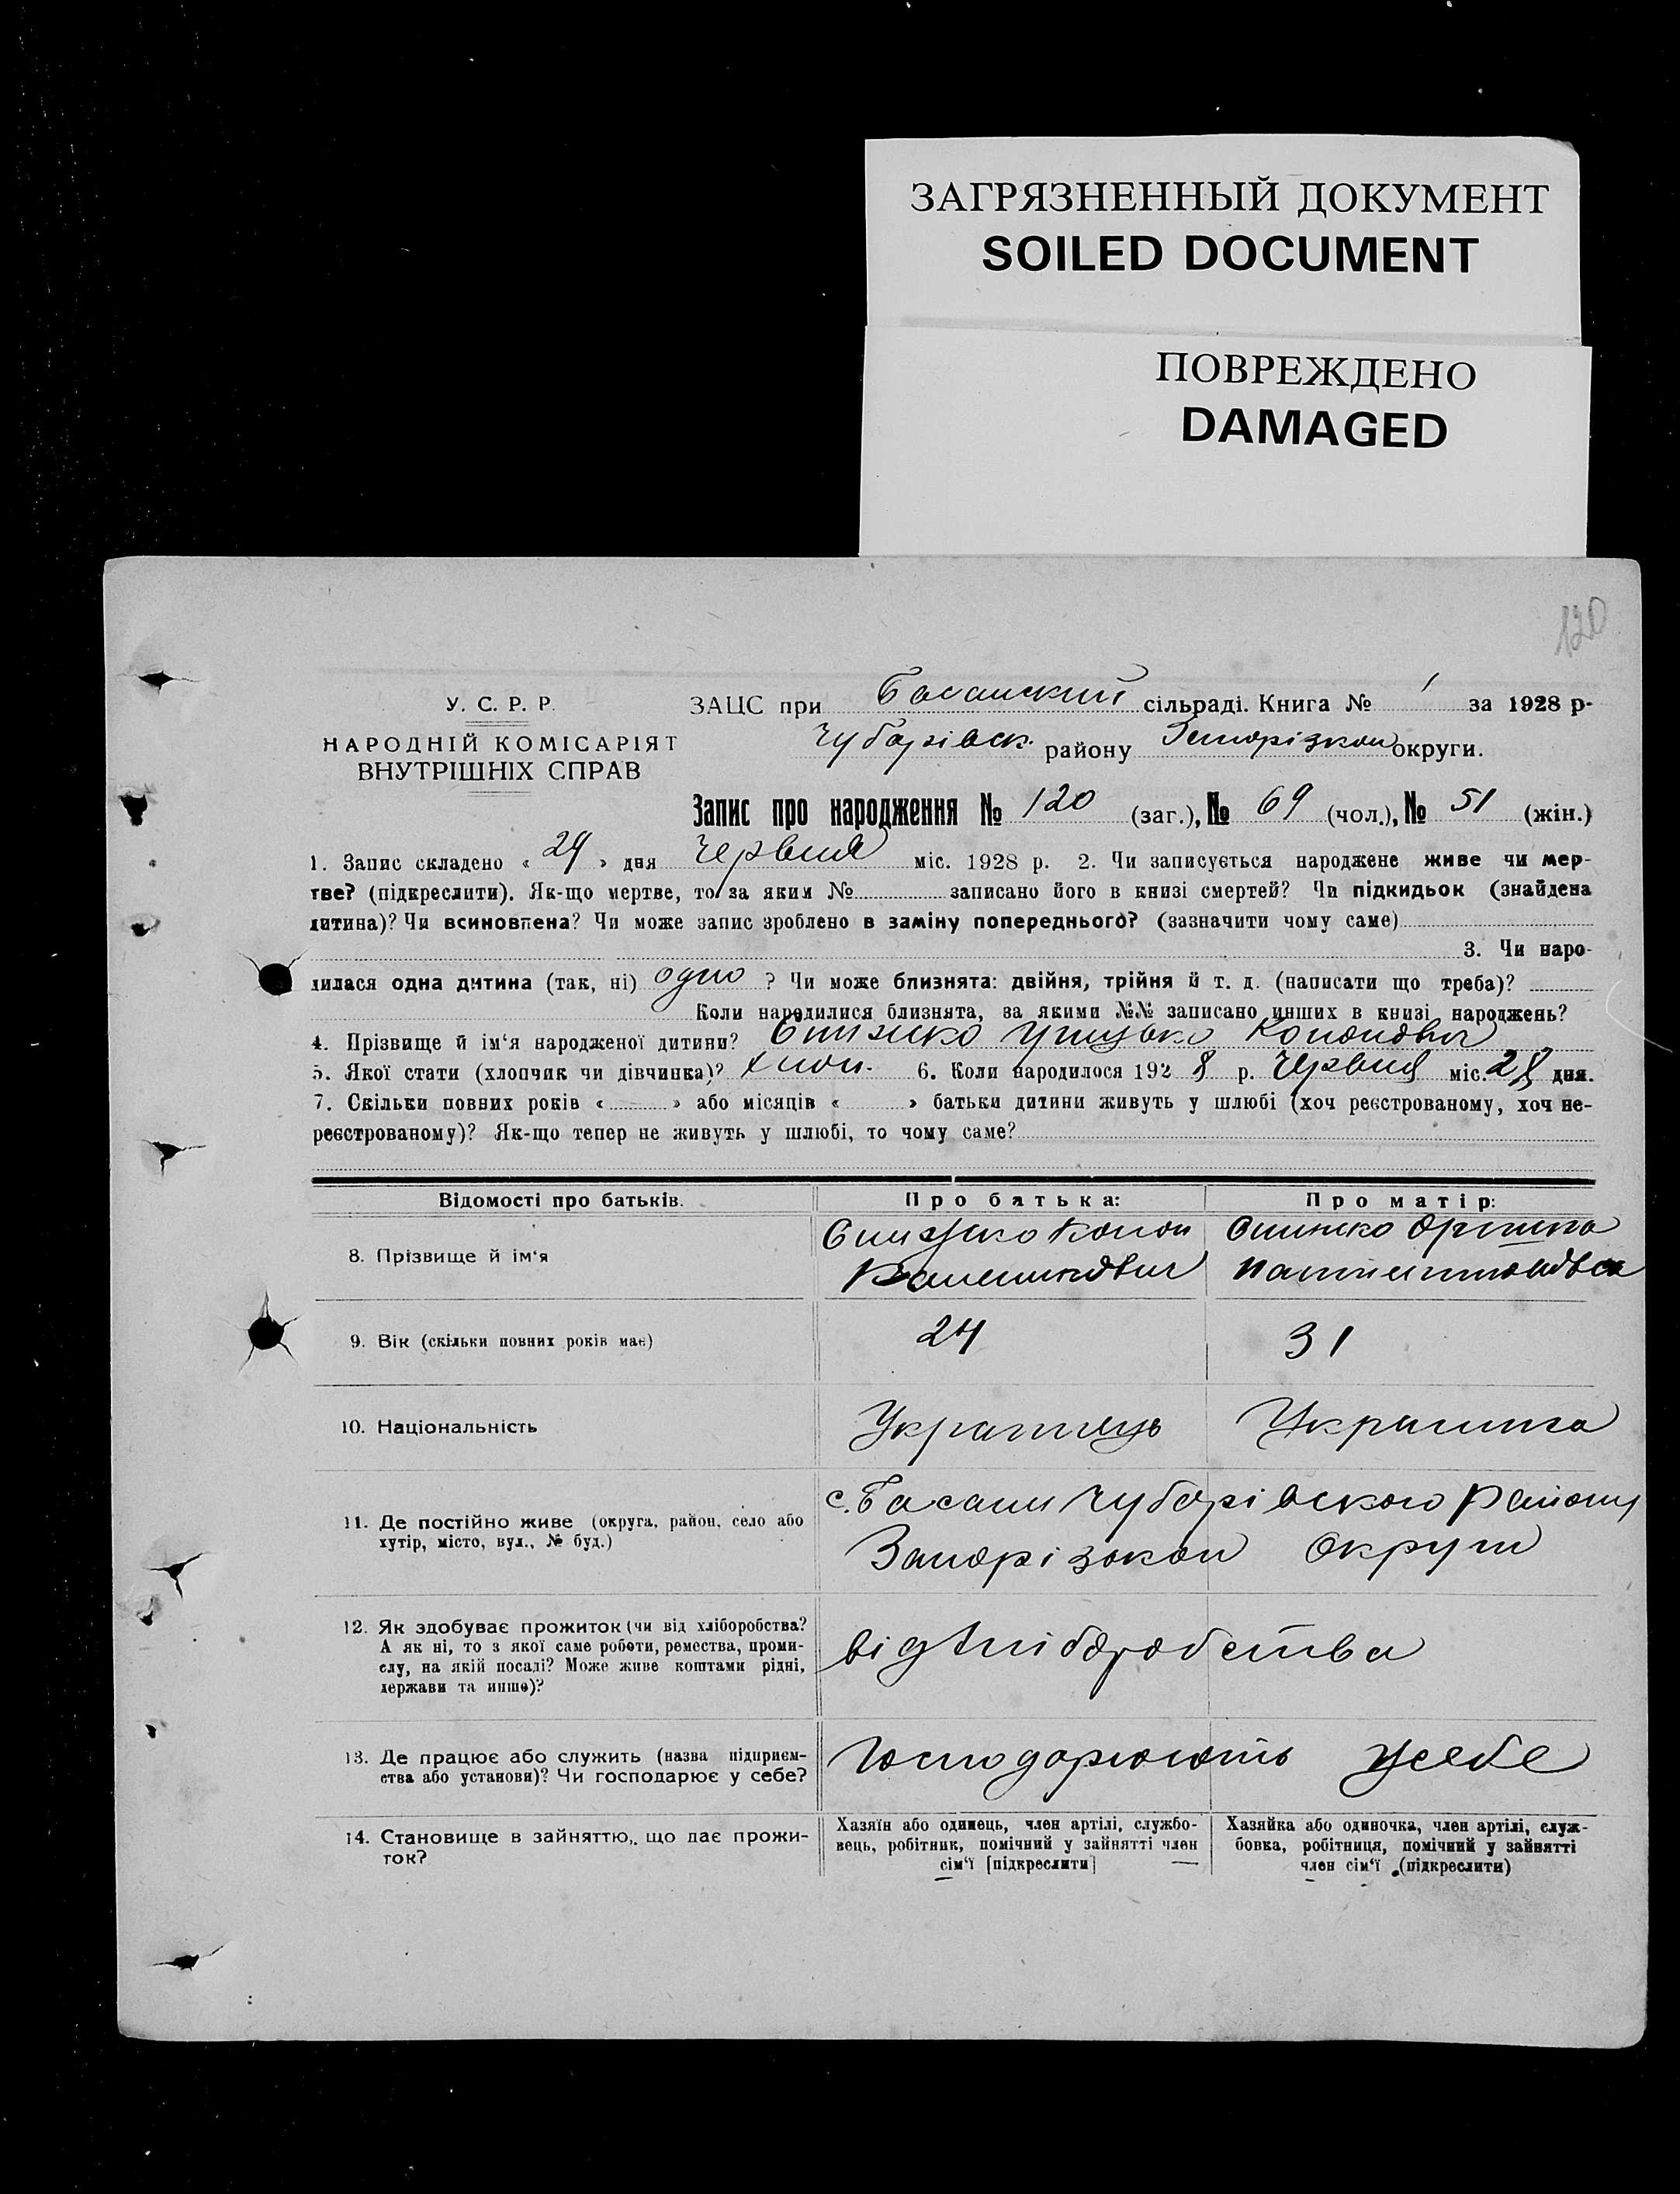 ЗАГРЯЗНЕННЫЙ ДОКУМЕНТ
SOILED DOCUMENT
ПОВРЕЖДЕНО
DAMAGED
120
У. С. Р. Р.
НАРОДНІЙ КОМІСАРІЯТ
ВНУТРІШНІХ СПРАВ
ЗАЦС при Басанский сільраді. Книга № 1 за 1928 р-
Чубарівск. району Запорізкои округи.
Запис про народження № 120 (заг.), № 69 (чол.), № 51 (жін.)
1. Запис складено « 29 » дня Червня міс. 1928 р. 2. Чи записується народжене живе чи мер-
тве? (підкреслити). Як-що мертве, то за яким № записано його в книзі смертей? Чи підкидьок (знайдена
дитина)? Чи всиновлена? Чи може запис зроблено в заміну попереднього? (зазначити чому саме)
3. Чи наро-
дилася одна дитина (так, ні) одно ? Чи може близнята: двійня, трійня й т. д. (написати що треба)?
Коли народилися близнята, за якими №№ записано инших в книзі народжень?
4. Прізвище й ім'я народженої дитини? Грицько Кононович
5. Якої стати (хлопчик чи дівчинка)? хлоп. 6. Коли народилося 192 8 р. Червня міс. 28 дня.
7. Скільки повних років « » або місяців « » батьки дитини живуть у шлюбі (хоч реєстрованому, хоч не-
реєстрованому)? Як-що тепер не живуть у шлюбі, то чому саме?
Відомості про батьків.
Про батька:
Про матір:
8. Прізвище й ім'я
Конон
Орина
9. Вік (скільки повних років має)
24
31
10. Національність
Украинець
Украинка
11. Де постійно живе (округа, район, село або
хутір, місто, вул., № буд.)
с. Басани Чубарівского Району
Запорізокои Округи
12. Як здобуває прожиток (чи від хліборобства?
А як ні, то з якої саме роботи, ремества, проми-
слу, на якій посаді? Може живе коштами рідні,
держави та инше)?
від хліборобства
13. Де працює або служить (назва підприєм-
ства або установи)? Чи господарює у себе?
Господарюють усебе
14. Становище в зайняттю, що дає прожи-
ток?
Хазяїн або одинець, член артілі, службо-
вець, робітник, помічний у зайнятті член
сім'ї [підкреслити]
Хазяйка або одиночка, член артілі, служ-
бовка, робітниця, помічний у зайнятті
член сім'ї (підкреслити)